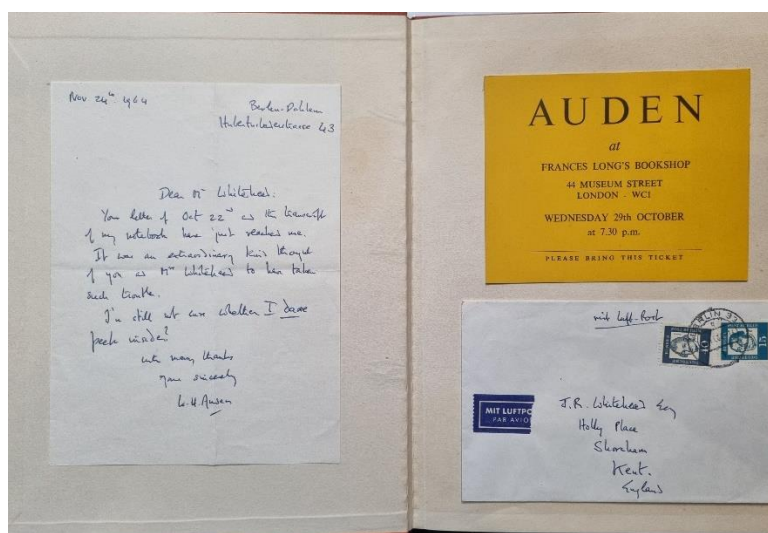 Nov 24th 1964
Berlin-Dahlem
43
Dear Mr Whitehead.
Your letter of Oct 22nd and the transcript
of my notebook have just reached me.
It was an extraordinary kind thought
of you and Mrs Whitehead to have taken
such trouble.
I'm still not sure whether I dare
peek inside!
with many thanks
yours sincerely
W.H. Auden
AUDEN
at
FRANCES LONG'S BOOKSHOP
44 MUSEUM STREET
LONDON - WC1
WEDNESDAY 29th OCTOBER
at 7.30 p.m.
PLEASE BRING THIS TICKET
mit Luft-Post
BERLIN 33
40
15
MIT LUFTPO
PAR AVIO
J.R. Whitehead Esq
Holly Place
Shoreham
Kent.
England